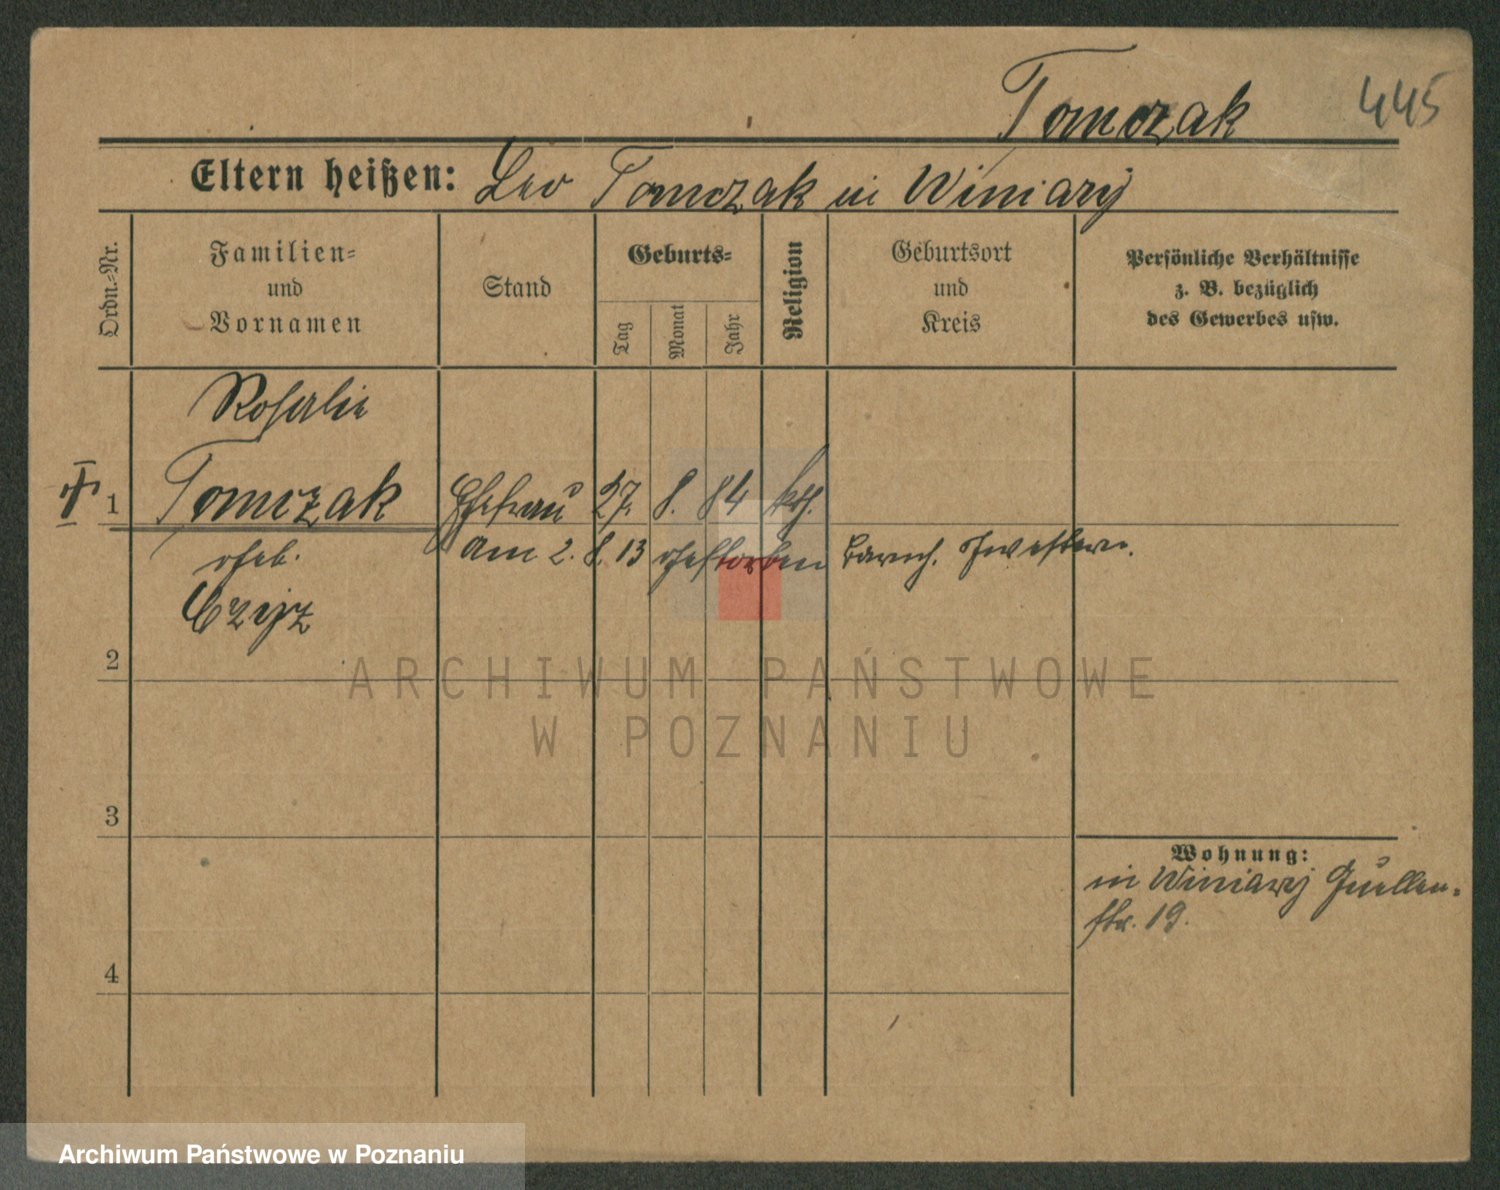 Tomczak 445
Eltern heißen: Leo Tomczak in Winiary
Ordn.-Nr.
Familien- und Vornamen
Stand
Geburts-
Tag Monat Jahr
Religion
Geburtsort und Kreis
Persönliche Verhältnisse
z. B. bezüglich
des Gewerbes usw.
Rosalie
1 Tomczak Ehefrau 27. 8. 84 kth.
geb. am 2. 8. 13 gestorben barmh. Schwestern.
Czyz
2
3
4
Wohnung:
in Winiary Quellen-
str. 19.
ARCHIWUM PAŃSTWOWE
W POZNANIU
Archiwum Państwowe w Poznaniu